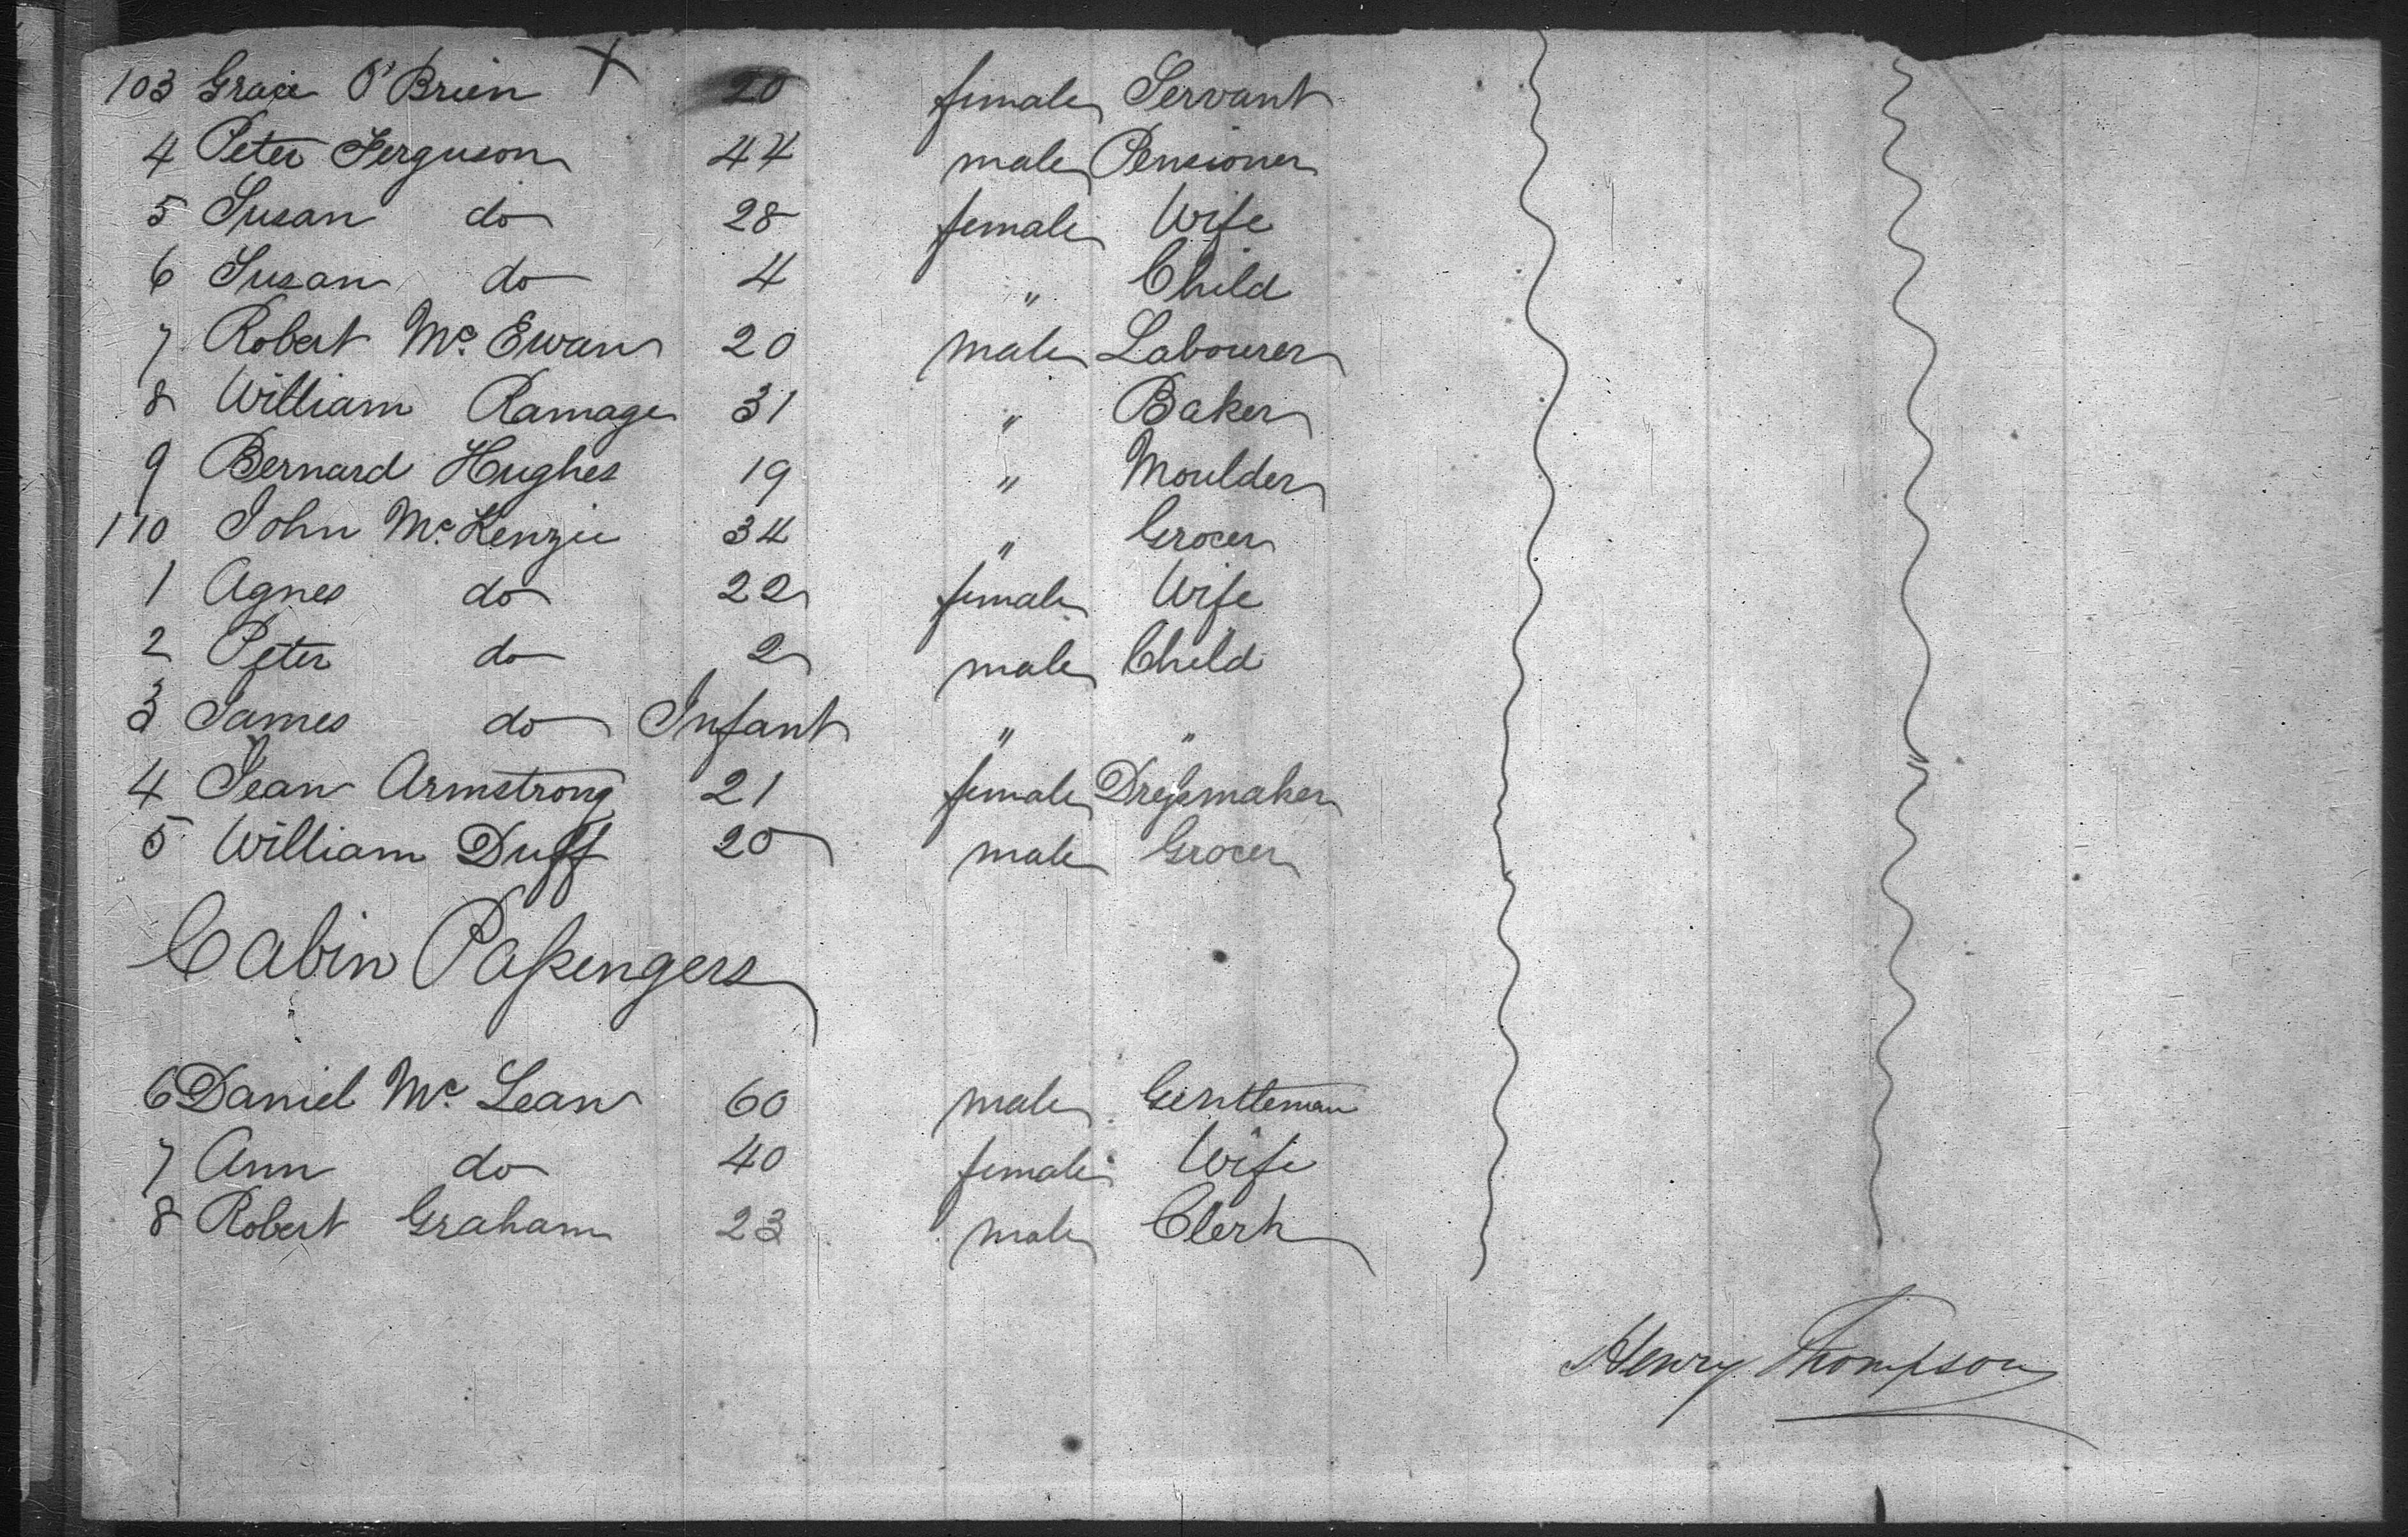 103 Grace O'Brien X 20 female Servant
4 Peter Ferguson 44 male Pensioner
5 Susan do 28 female Wife
6 Susan do 4 " Child
7 Robert Mc. Ewan 20 male Labourer
8 William Ramage 31 " Baker
9 Bernard Hughes 19 " Moulder
110 John Mc. Kenzie 34 " Grocer
1 Agnes do 22 female Wife
2 Peter do 2 male Child
3 James do Infant " "
4 Jean Armstrong 21 female Dressmaker
5 William Duff 20 male Grocer
Cabin Passengers
6 Daniel Mc. Lean 60 male Gentleman
7 Ann do 40 female Wife
8 Robert Graham 23 male Clerk
Henry Thompson